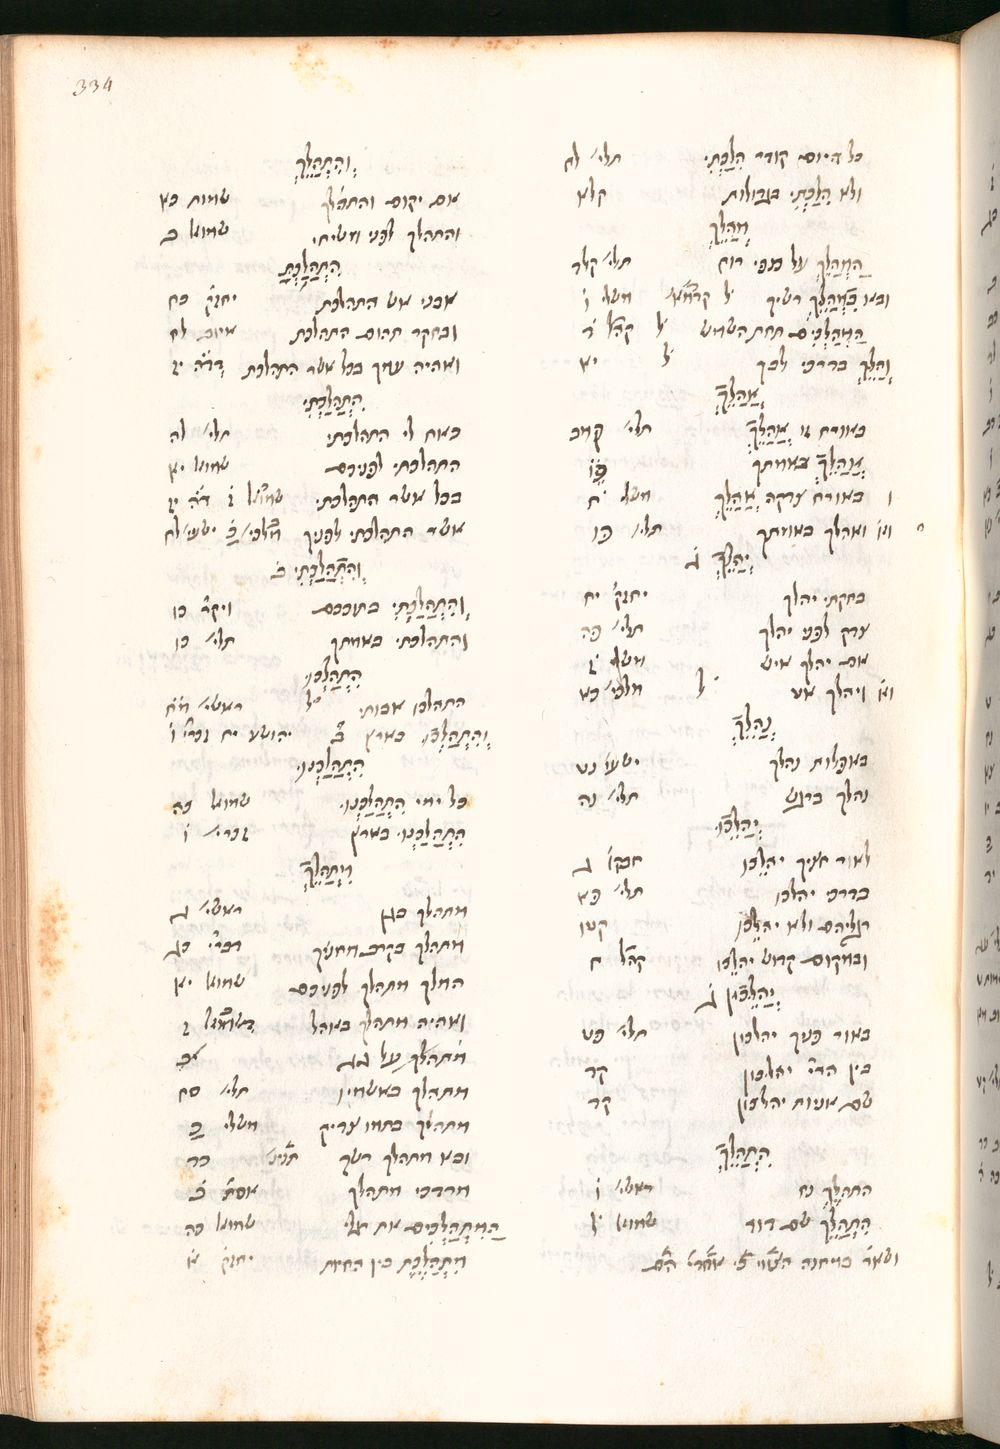 334
כל היום קודר הִלַּכְתִּי תלי׳ לח
ולא הִלַּכְתִּי בגדולות קלא
מְהַלֵּךְ
הַמְהַלֵּךְ על כנפי רוח תלי׳ קד
ובא כִּמְהַלֵּךְ רשיך משלי ו
הַמְהַלְּכִים תחת השמש ל קהל ד
וְהַלֵּךְ בדרכי לבך ל יא
אֲהַלֵּךְ
באורח זו אֲהַלֵּךְ תלי׳ קמב
אֲהַלֵּךְ באמתך פו
ו באורח צדקה אֲהַלֵּךְ משלי ח
ואהלך באמתך תלי׳ כו
יְהַלֵּךְ ג
בחקתי יהלך יחזק׳ יח
צדק לפניו יהלך תלי׳ פה
אם יהלך איש משלי ו
ויהלך אט ל מלכי׳ כא
נְהַלֵּךְ
באפלות נהלך ישעי׳ נט
נהלך ברגש תלי׳ נה
יְהַלֵּכוּ
לאור חציך יהלכו חבקו׳ ג
בדרכי יהלכו תלי׳ פא
רגליהם ולא יהלכו קטו
וממקום קדוש יהלכו קהל ח
יְהַלֵּכוּן ג
באור פניך יהלכון תלי׳ פט
בין הרי׳ יהלכון קד
שם אניות יהלכון קד
הִתְהַלֵּךְ
התהלך נח ראשי׳ ו
הִתְהַלֵּךְ שם דוד שמוא׳ ל
וְהִתְהַלֵּךְ
אם יקום והתהלך שמות כא
והתהלך לפני משיחי שמוא׳ ב
הִתְהַלַּכְתָּ
אבני אש התהלכת יחזק׳ כח
ובחקר תהום התהלכת איוב לח
ואהיה עמך בכל אשר התהלכת דה׳ יז
הִתְהַלַּכְתִּי
כאח לי התהלכתי תלי׳ לה
התהלכתי לפניכם שמוא׳ יא
בכל אשר התהלכתי שמוא׳ ז דה׳ יז
אשר התהלכתי לפניך מלכי׳ ב ישעי׳ לח
וְהִתְהַלַּכְתִּי ב
וְהִתְהַלַּכְתִּי בתוככם ויקר׳ כו
והתהלכתי באמתך תלי׳ כו
הִתְהַלְּכוּ
התהלכו אבותי ל ראשי׳ מח
וְהִתְהַלְּכוּ בארץ ב יהושע יח זכרי׳ ו
הִתְהַלַּכְנוּ
כל ימי הִתְהַלַּכְנוּ שמוא׳ כה
הִתְהַלַּכְנוּ בארץ זכרי׳ ו
מִתְהַלֵּךְ
מתהלך בגן ראשי׳ ג
מתהלך בקרב מחניך דברי׳ כג
המלך מתהלך לפניכם שמוא׳ יא
ואהיה מתהלך באהל דשמוא׳ ז
מתהלך על גג יב
מתהלך באשמיו תלי׳ סח
מתהלך בתמו צדיק משלי כ
ובא מתהלך רשך משלי כד
מרדכי מתהלך אסת׳ ב
הַמִּתְהַלְּכִים את אלי שמוא׳ כה
מִתְהַלֶּכֶת בין החיות יחזק׳ א